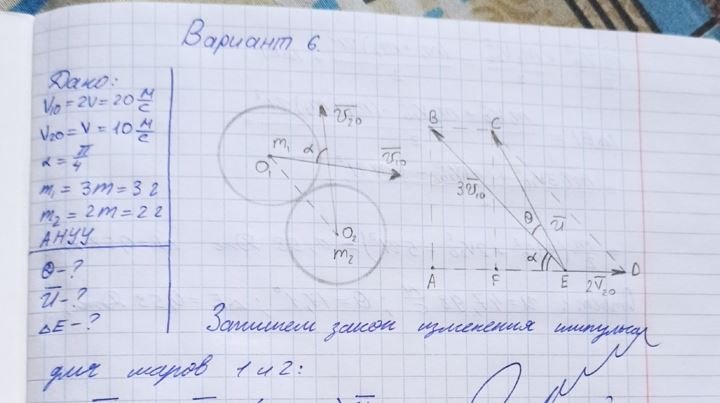 Вариант 6.
Дано:
V₁₀ = 2V = 20 м/с
V₂₀ = V = 10 м/с
α = π/4
m₁ = 3m = 3 г
m₂ = 2m = 2 г
АНУУ
Θ - ?
U̅ - ?
ΔE - ?
V̅₂₀
m₁ α
V̅₁₀
O₁
O₂
m₂
B C
3V̅₁₀
Θ U̅
α
A F E 2V̅₂₀ D
Запишем закон изменения импульса
для шаров 1 и 2: